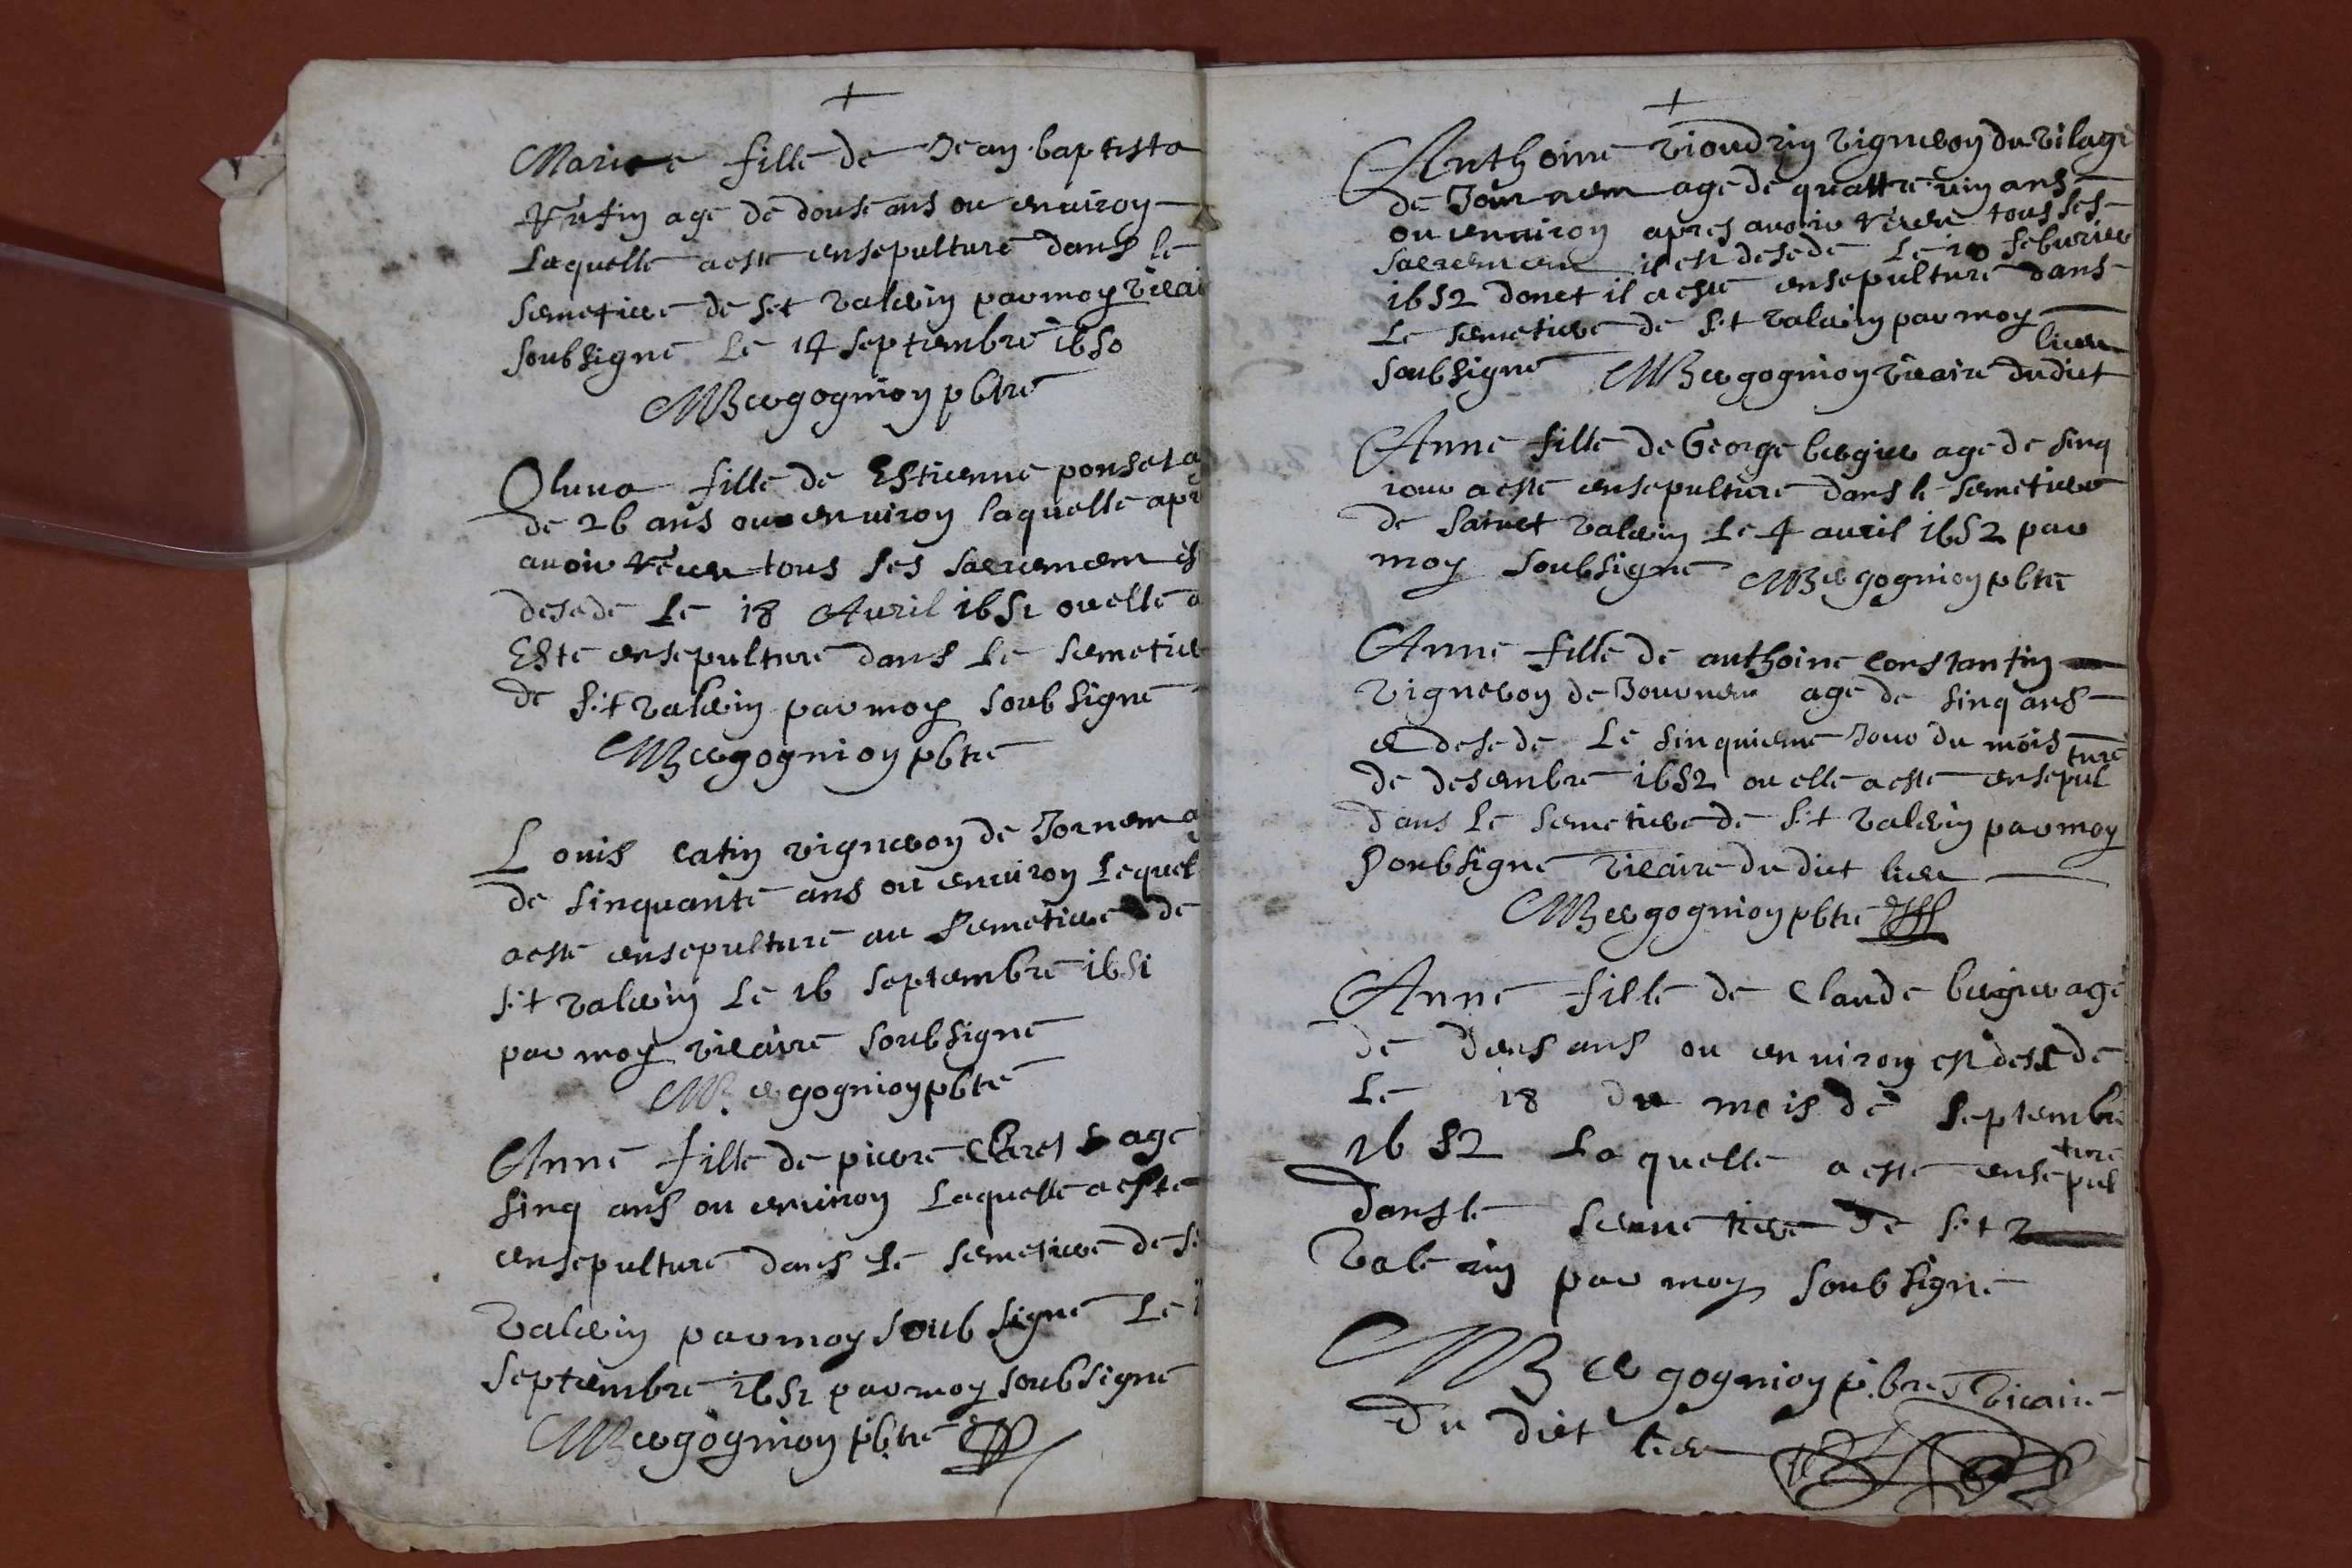 +
Mariee fille de Jean baptista
Rufin age de douse ans ou environ
Laquelle a este ensepulturé dans le
semetiere de S.t valerin par moy vicai
soubsigne Le 14 septembre 1650
M Bergognion pbtre
Oluva fille de Estienne ponset a
de 26 ans ou environ laquelle apr
avoir receu tous ses sacremem es
desede Le 18 Avril 1651 ou elle a
Este ensepulturé dans Le semetier
de S.t valerin par moy soubsigne
M Bergognion pbtre
Louis catin vigneron de Jornem a
de sinquante ans ou environ Lequel
a este ensepulturé au semetiere de
S.t valerin Le 16 septembre 1651
par moy vicaire soubsigne
M Bergognion pbtre
Anne fille de pierre age
sinq ans ou environ Laquelle a este
ensepulturé dans Le semetiere de S.
valerin par moy soubsigne Le 1
septembre 1651 par moy soubsigne
M Bergognion pbtre
+
Anthoine vioudrin vigneron du vilage
de Journem age de quattre vin ans
ou environ apres avoir receu tous ses
sacremem il est desede Le 10 feburier
1652 donct il a este ensepulturé dans
Le semetiere de S.t valerin par moy
lieu
soubsigne M Bergognion vicaire du dict
Anne fille de George bergier age de sinq
iour a este ensepulturé dans le semetiere
de sainct valerin Le 4 avril 1652 par
moy soubsigne M Bergognion pbtre
Anne fille de anthoine constantin
vigneron de Journem age de sinq ans
e desede Le sinquieme Jour du mois
ture
de desembre 1652 ou elle a este ensepul
dans Le semetiere de S.t valerin par moy
soubsigne vicaire du dict lieu
M Bergognion pbtre
Anne fille de Claude bergier age
de deus ans ou environ est desede
Le 18 du mois de septembre
ture
1652 Laquelle a este ensepul
dans le semetiere de S.t
valerin par moy soubsigne
M Bergognion p.bre vicaire
du dict lieu